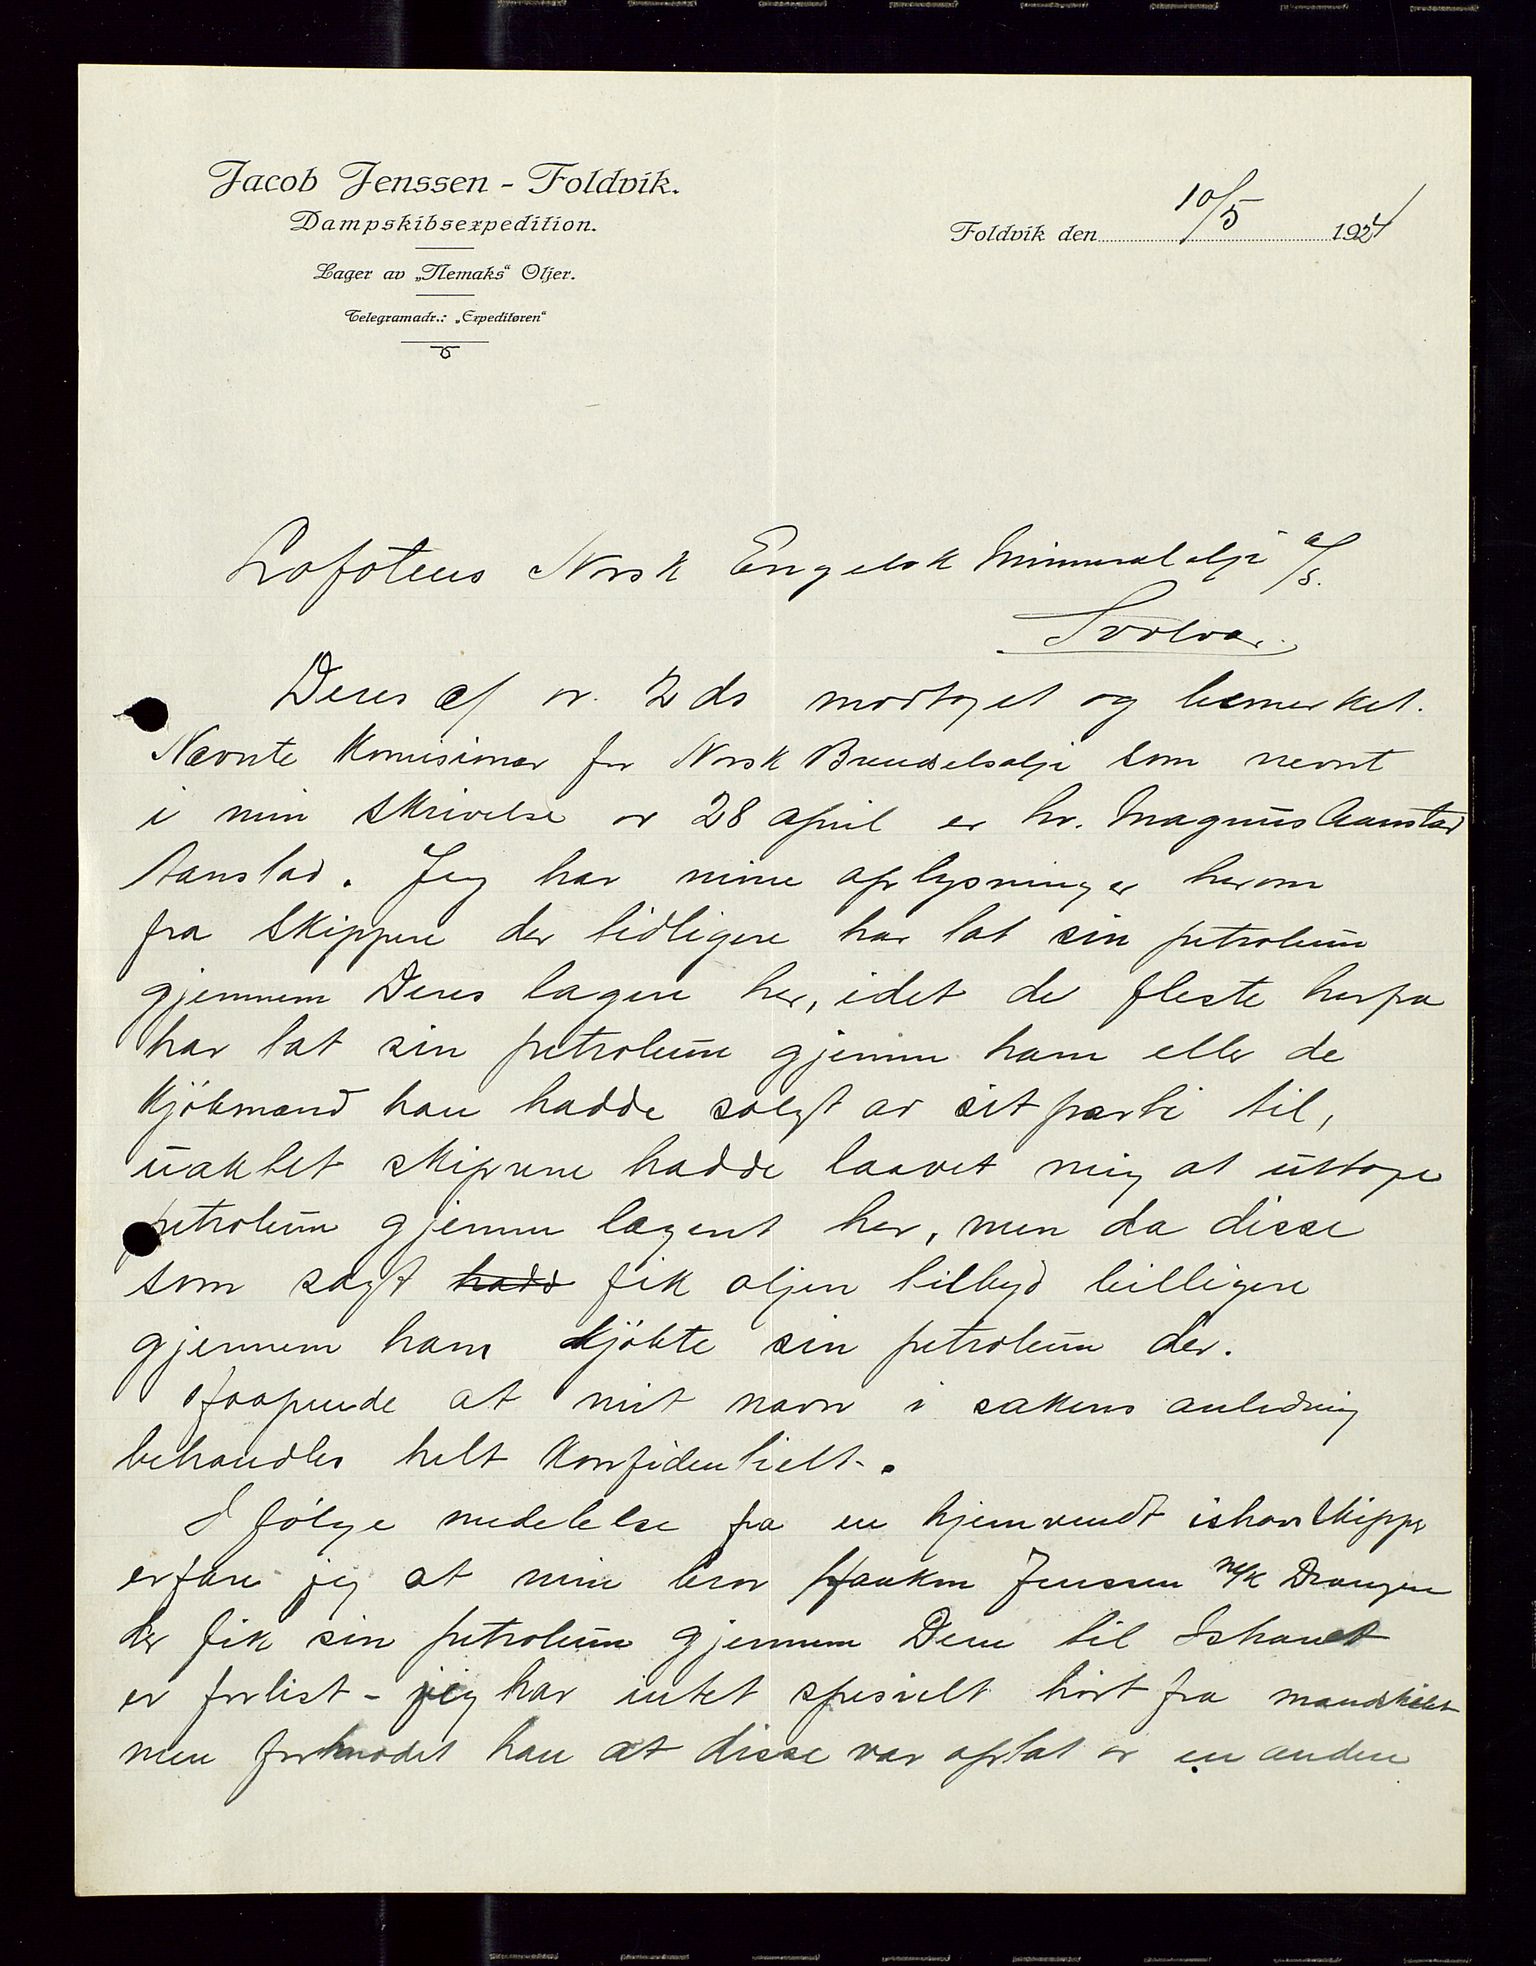 Jacob Jenssen - Foldvik.
Dampskibsexpedition.
Lager av „Nemaks“ Oljer.
Telegramadr.: „Expeditøren“
Foldvik den 10/5 1924
Lofotens Norsk Engelsk Mineralolje a/s.
Svolvær.
Deres af av 2 ds modtaget og bemerket.
Nævnte Komisionær for Norsk Brændselsolje som nevnt
i min skrivelse av 28 april er hr. Magnus Aanstad
Aanstad. Jeg har mine oplysninger herom
fra skippere der tidligere har tat sin petroleum
gjennem Deres lagere her, idet de fleste herfra
har tat sin petroleum gjennem ham eller de
Kjöbmænd han hadde solgt av sit parti til,
uaktet skiprene hadde laavet mig at uttage
petroleum gjennem lageret her, men da disse
som sagt hadd fik oljen tilbyd billigere
gjennem ham kjöbte sin petroleum der.
Haapende at mit navn i sakens anledning
behandles helt konfidentielt.
I følge meddelelse fra en hjemvendt ishavsskipper
erfarer jeg at min bror Haakon Jenssen m/k Draugen
der fik sin petroleum gjennem Dem til Ishavet
er forlist - jeg har intet spesielt hørt fra mandskabet
men formodet han at disse var optat av en anden